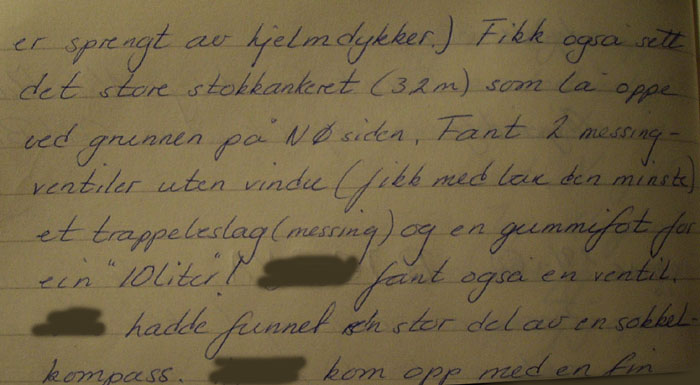 er sprengt av hjelmdykker.) Fikk også sett
det store stokkankeret (3.2m) som lå oppe
ved grunnen på NØ siden. Fant 2 messing-
ventiler uten vindu (fikk med bak den minste)
et trappebeslag (messing) og en gummifot for
ein "10liter"! fant også en ventil.
hadde funnet en stor del av en sokkel-
kompass. kom opp med en fin